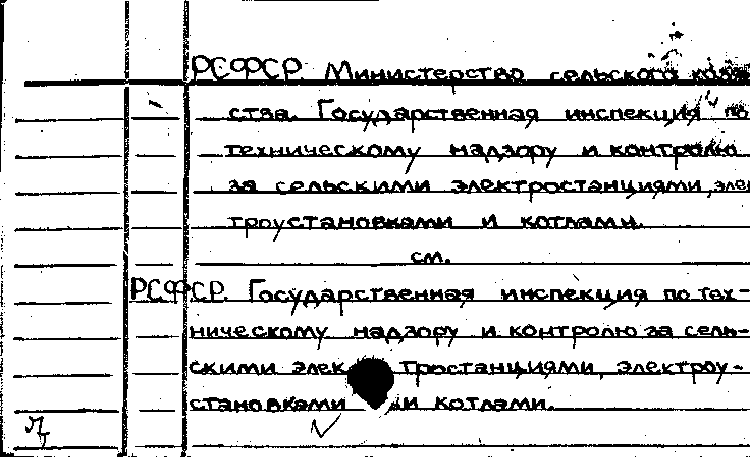 РСФСР. Министерство сельского хозяй
ства. Государственная инспекция по
техническому надзору и контролю
за сельскими электростанциями, элек
троустановками и котлами.
см.
РСФСР. Государственная инспекция по тех-
ническому надзору и контролю за сель-
скими элек тростанциями, электроу-
становками и котлами.